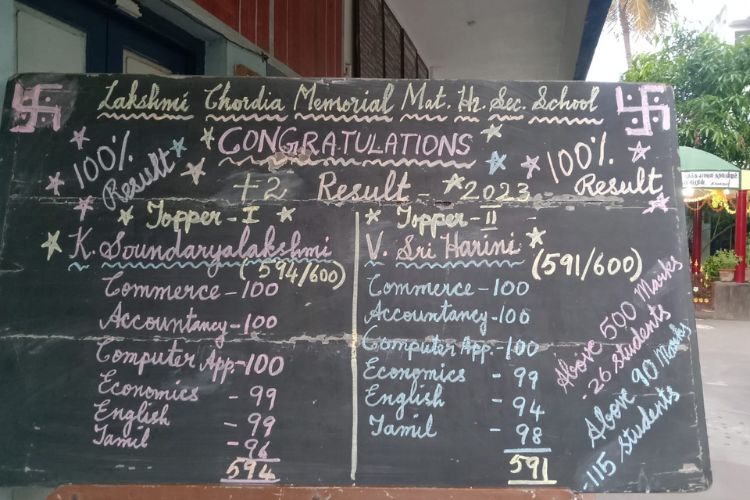 Lakshmi Chordia Memorial Mat. Hr. Sec. School
CONGRATULATIONS
100% Result
100% Result
+2 Result 2023
Topper - I
K. Soundaryalakshmi
(594/600)
Commerce - 100
Accountancy - 100
Computer App. - 100
Economics - 99
English - 99
Tamil - 96
594
Topper - II
V. Sri Harini
(591/600)
Commerce - 100
Accountancy - 100
Computer App. - 100
Economics - 99
English - 94
Tamil - 98
591
Above 500 Marks
- 26 Students
Above 90 Marks
- 115 Students